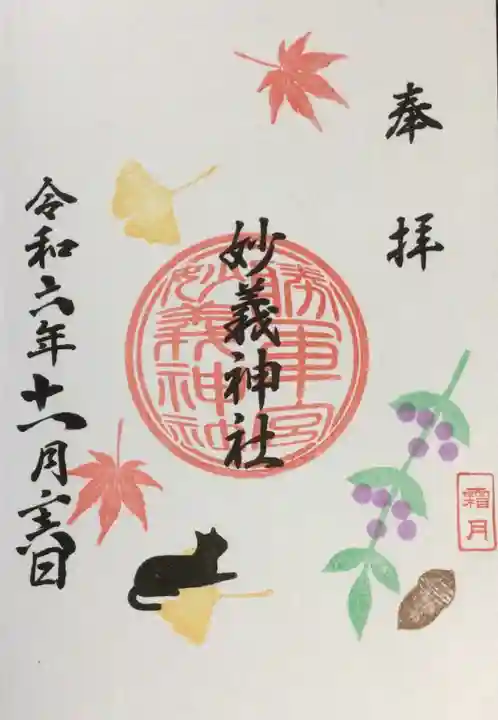 奉拝
勝軍宮
妙義神社
妙義神社
令和六年十一月二十六日
霜月